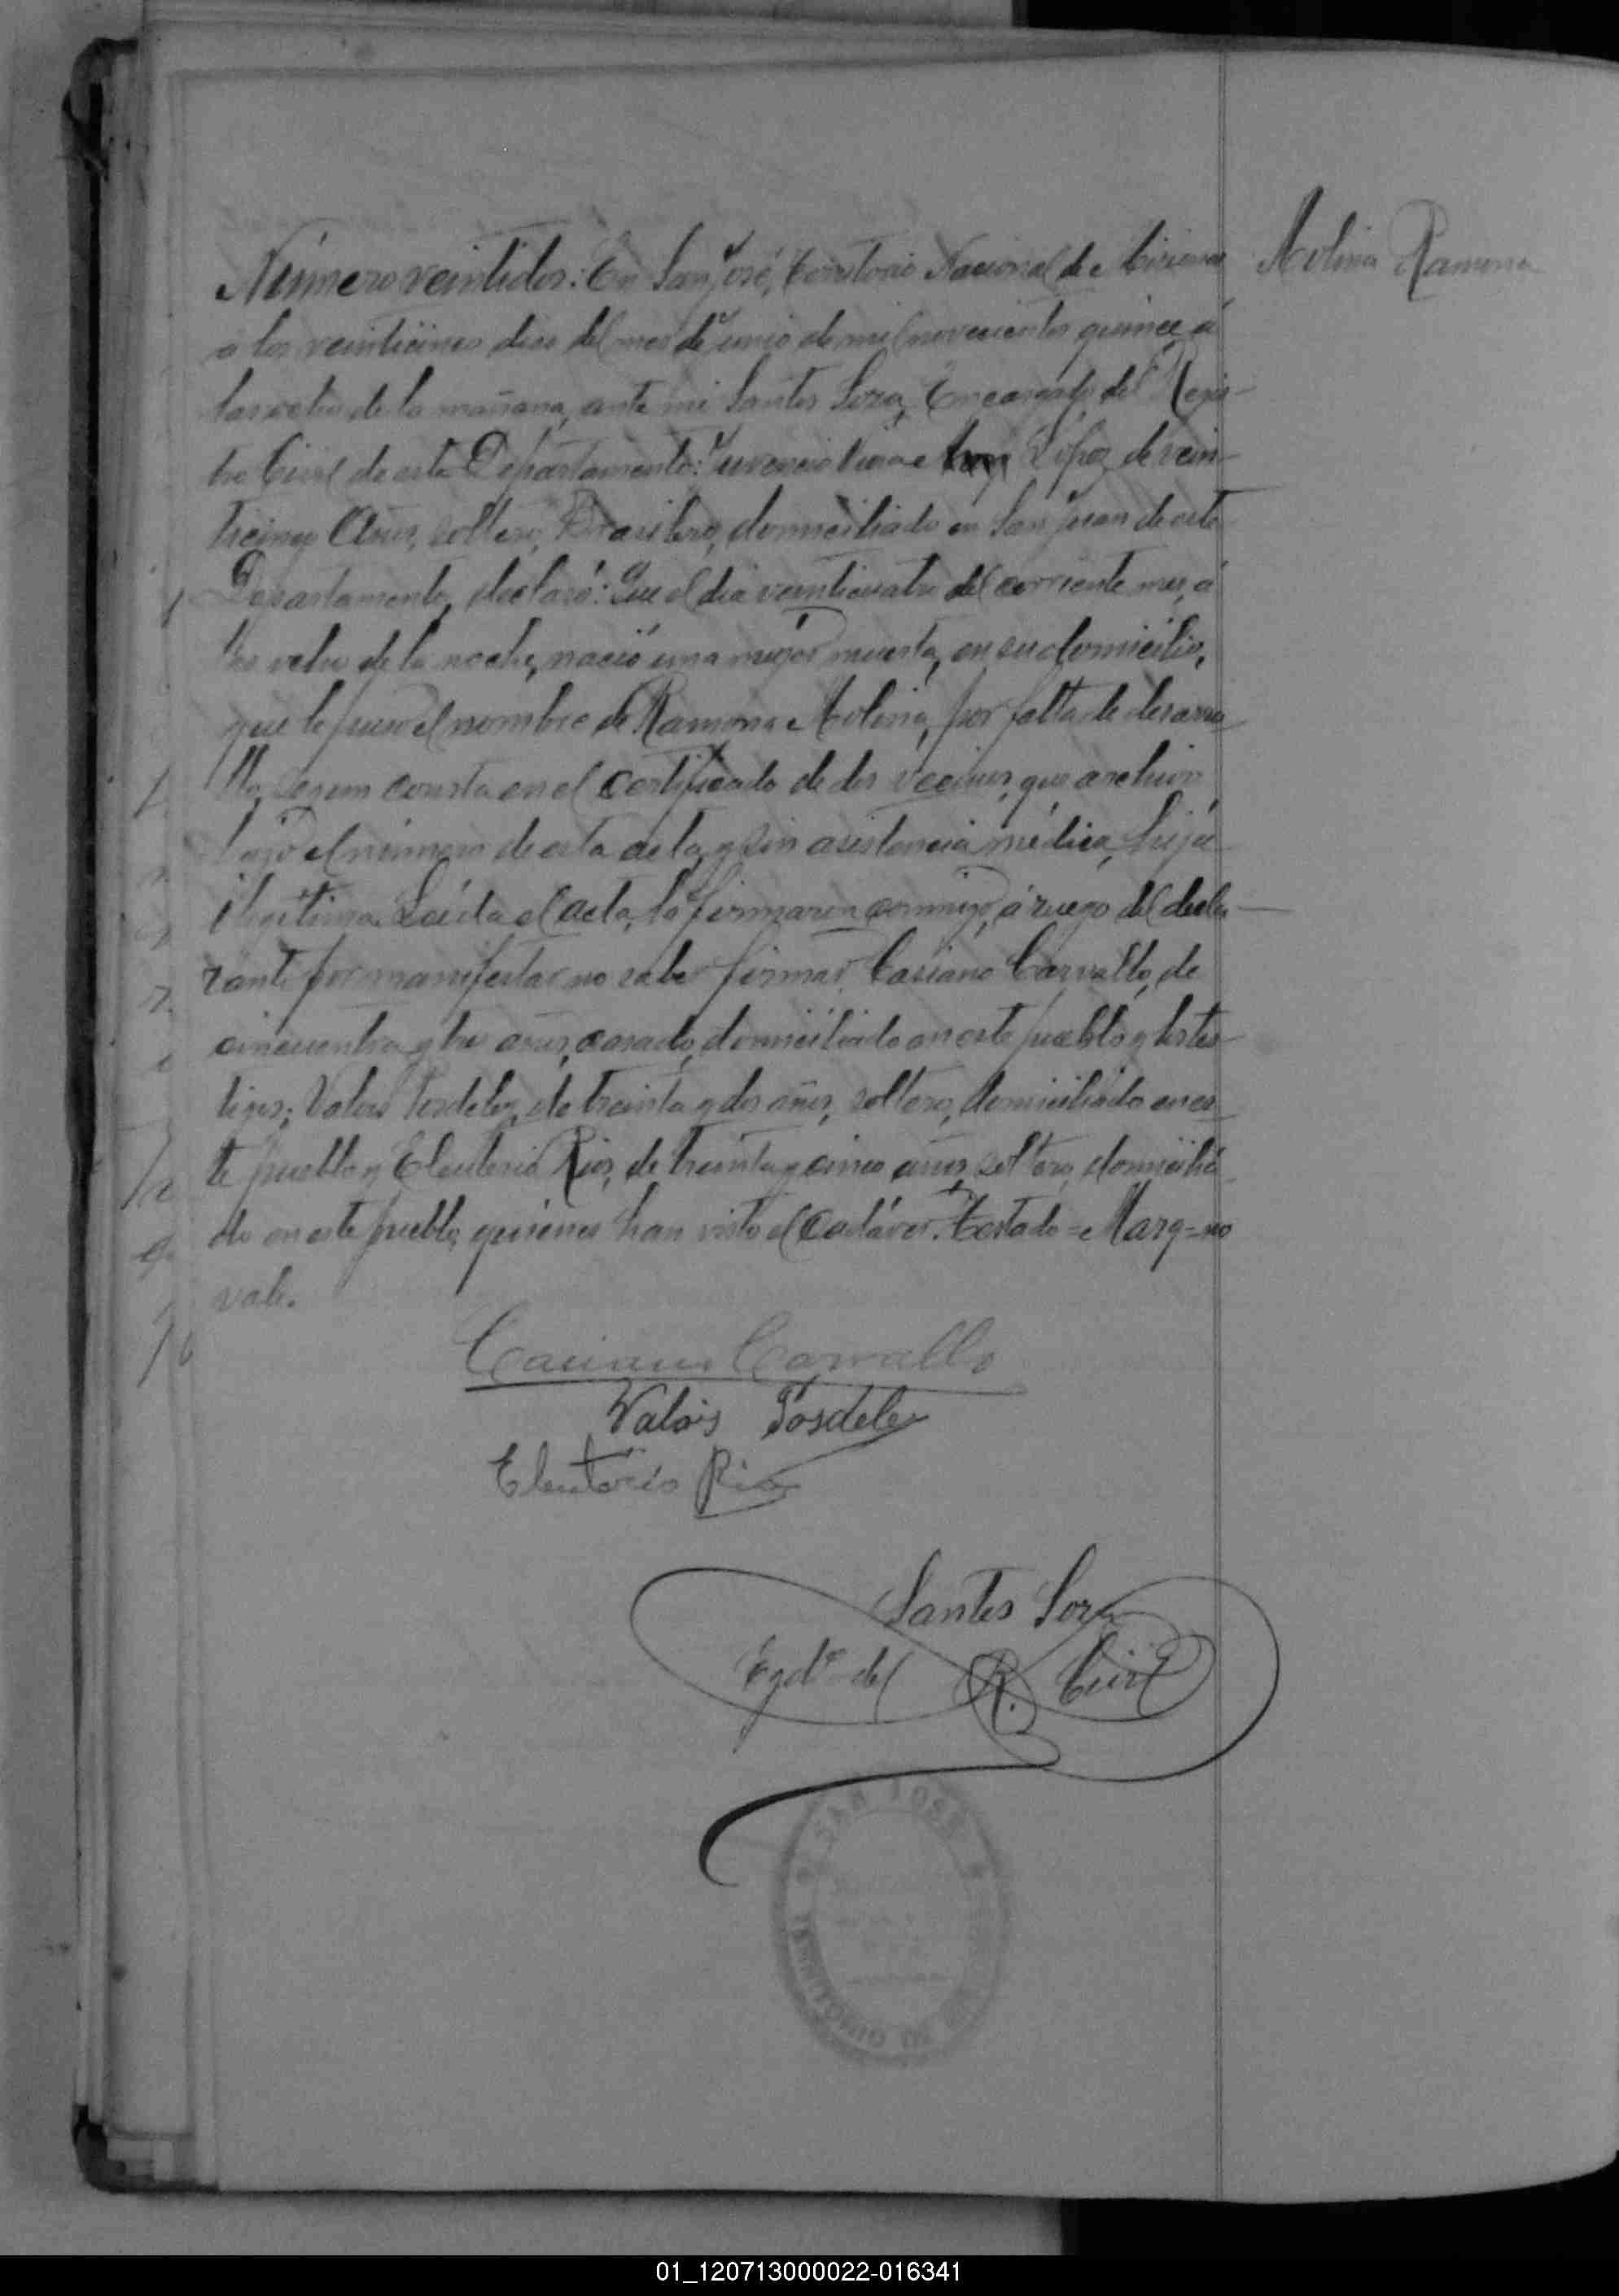 Molina Ramona
Número veintidos: En San José, Territorio Nacional de Misiones
a los veinticinco dias del mes de Junio de mil novecientos quince, á
las ocho de la mañana, ante mi Santos Soza, Encargado del Regis-
tro Civil de este Departamento: Juvencio López, de vein-
ticinco años, soltero, Brasilero, domiciliado en San Juan de este
Departamento, declaró: Que el dia veinticuatro del corriente mes, á
las ocho de la noche, nació una mujer muerta, en su domicilio,
que le puso el nombre de Ramona Molina, por falta de desarro
llo, segun consta en el certificado de dos vecinos, que archivo
bajo el número de esta acta, y sin asistencia médica, hija
ilegitima. Leída el acta, la firmaron conmigo, á ruego del decla-
rante por manifestar no saber firmar, Casiano Carvallo, de
cincuenta y tres años, casado, domiciliado en este pueblo y los tes-
tigos; Valois Posdeley, de treinta y dos años, soltero, domiciliado en es-
te pueblo y Eleuterio Rios, de treinta y cinco años, soltero, domicilia-
do en este pueblo, quienes han visto el cadáver. Testado = Marg = no
vale.
Casiano Carvallo
Valois Posdeley
Eleuterio Rios
Santos Soza
Egdo del R. Civil
SAN JOSE
01_120713000022-016341